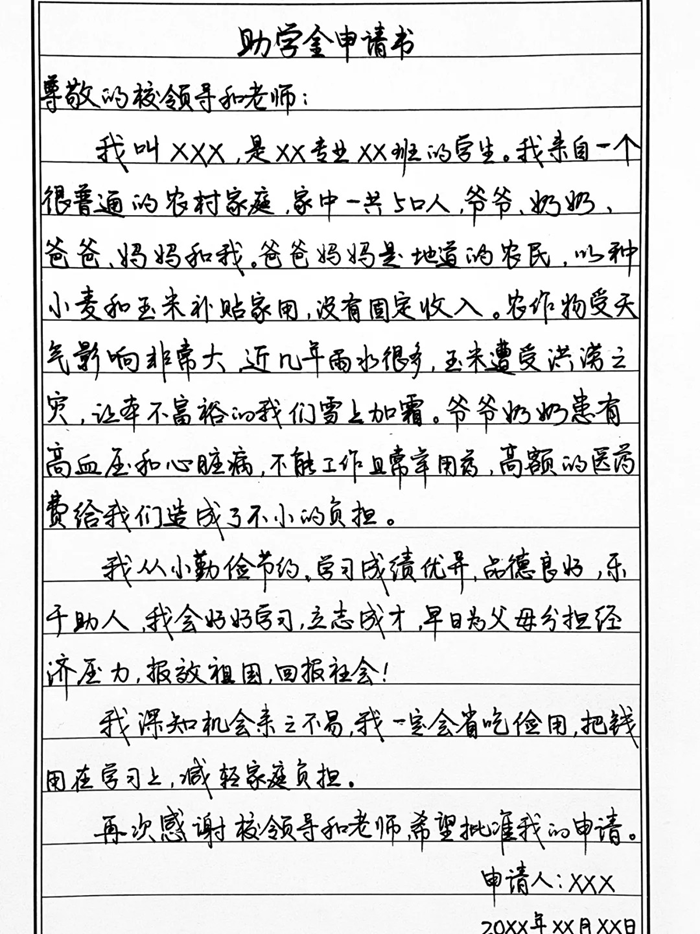 助学金申请书
尊敬的校领导和老师：
我叫XXX，是XX专业XX班的学生。我来自一个
很普通的农村家庭，家中一共5口人，爷爷、奶奶、
爸爸、妈妈和我。爸爸妈妈是地道的农民，以种
小麦和玉米补贴家用，没有固定收入。农作物受天
气影响非常大，近几年雨水很多，玉米遭受洪涝之
灾，让本不富裕的我们雪上加霜。爷爷奶奶患有
高血压和心脏病，不能工作且常年用药，高额的医药
费给我们造成了不小的负担。
我从小勤俭节约、学习成绩优异，品德良好，乐
于助人，我会好好学习，立志成才，早日为父母分担经
济压力，报效祖国，回报社会！
我深知机会来之不易，我一定会省吃俭用，把钱
用在学习上，减轻家庭负担。
再次感谢校领导和老师，希望批准我的申请。
申请人：XXX
20XX年XX月XX日